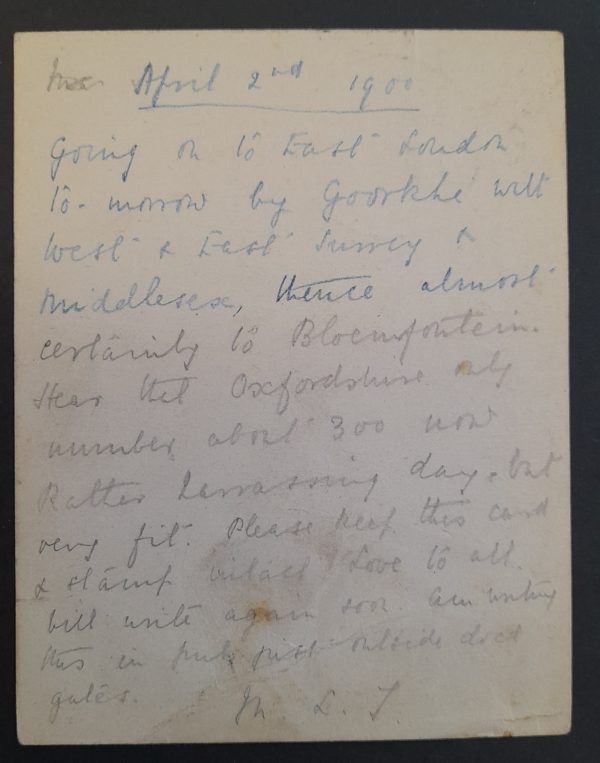 April 2nd 1900
Going on to East London
to-morrow by Goorkha with
West & East Surrey &
Middlesex, thence almost
certainly to Bloemfontein.
Hear that Oxfordshire only
number about 300 now
Rather harrassing day, but
very fit. Please keep this card
& stamp intact Love to all.
Will write again soon am writing
this in pub just outside dock
gates.